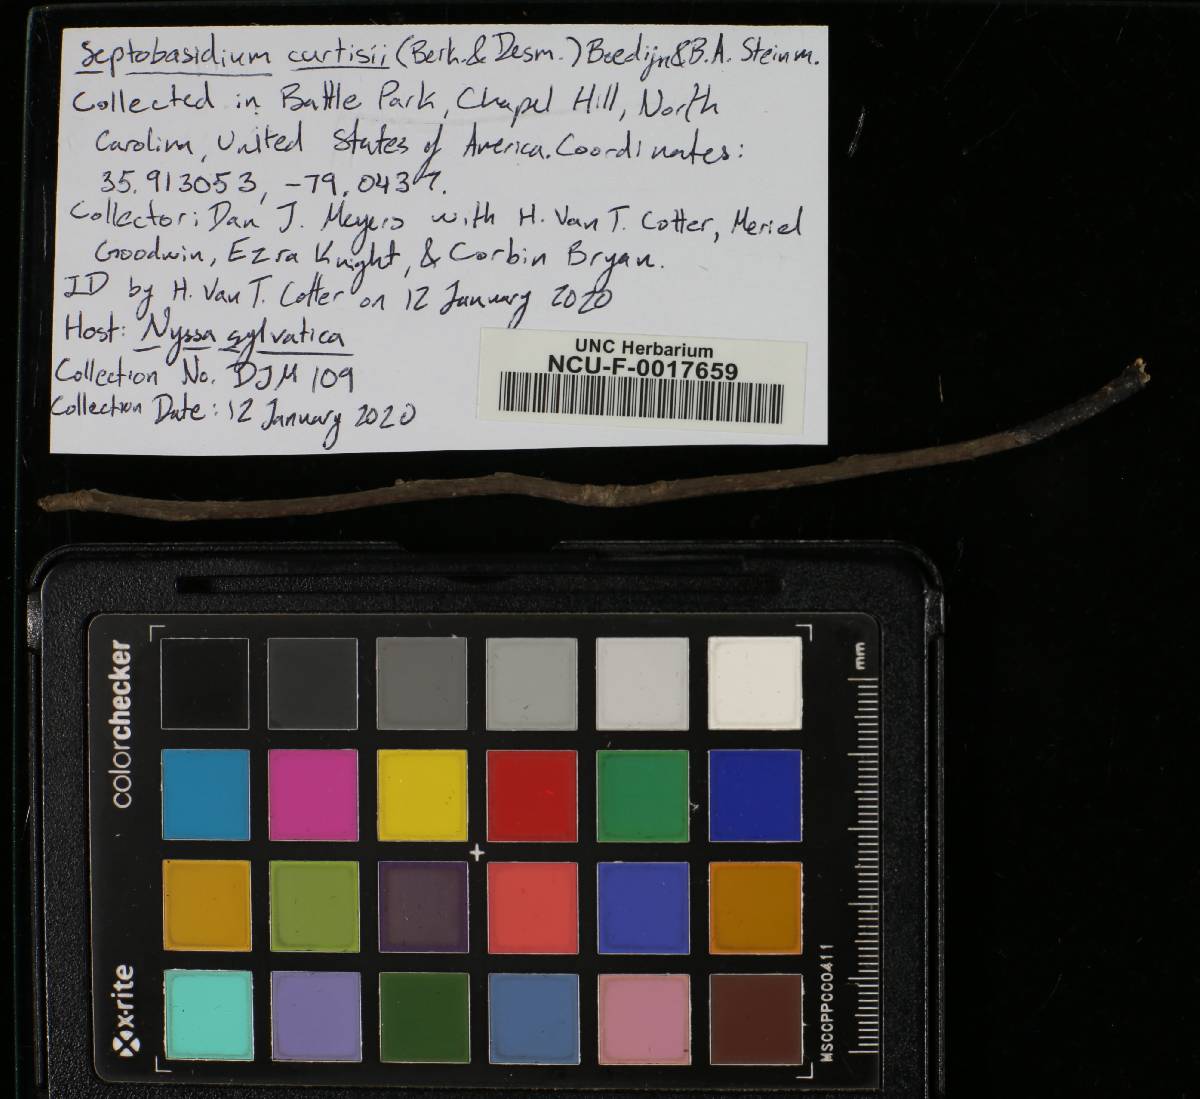 Septobasidium curtisii (Berk. & Desm.) Boedijn & B.A. Steinm.
Collected in Battle Park, Chapel Hill, North
Carolina, United States of America. Coordinates:
35.913053, -79.0437.
Collector: Dan J. Meyers with H. Van T. Cotter, Meriel
Goodwin, Ezra Knight, & Corbin Bryan.
ID by H. Van T. Cotter on 12 January 2020
Host: Nyssa sylvatica
Collection No. DJM 109
Collection Date: 12 January 2020
UNC Herbarium
NCU-F-0017659
colorchecker
x-rite
mm
MSCCPPC00411